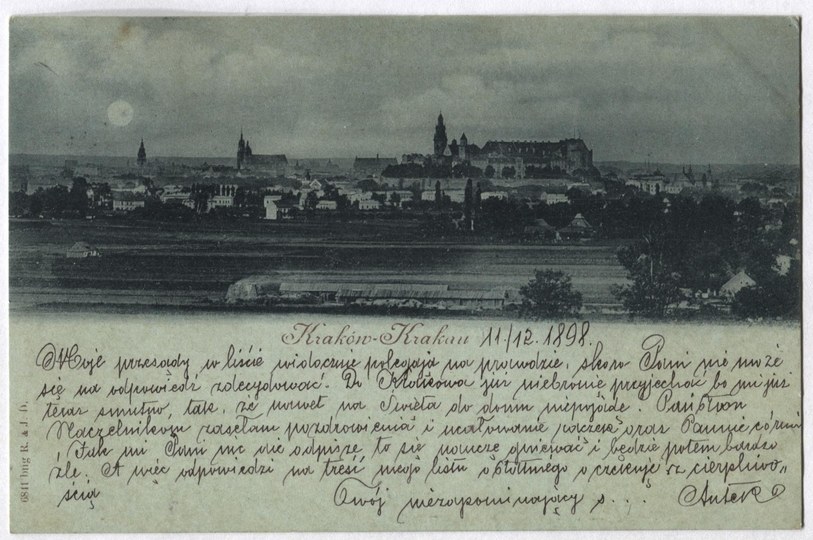 Kraków-Krakau 11/12. 1898.
Moje przesądy w liście widocznie polegają na prawdzie, skoro Pani nie może
się na odpowiedź zdecydować. Do Krakowa już niebronię przyjechać bo mi już
teraz smutno, tak, że nawet na Święta do domu niepójdę. Państwu
Naczelnikom zasełam pozdrowienia i ucałowanie rączek oraz Pannie córuni
, Jak mi Pani nic nie odpisze, to się muszę gniewać i będzie potem bardzo
źle. A więc odpowiedzi na treść mego listu ostatniego oczekuję z cierpliwo„
ścią Twój niezapominający s... Antek
6811 Img R. & J. D.